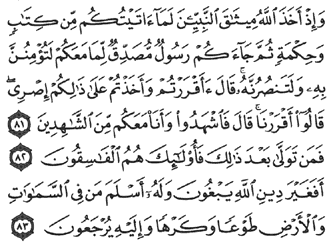 وَإِذْ أَخَذَ ٱللَّهُ مِيثَٰقَ ٱلنَّبِيِّـۧنَ لَمَآ ءَاتَيْتُكُم مِّن كِتَٰبٍ
وَحِكْمَةٍ ثُمَّ جَآءَكُمْ رَسُولٌ مُّصَدِّقٌ لِّمَا مَعَكُمْ لَتُؤْمِنُنَّ
بِهِۦ وَلَتَنصُرُنَّهُۥ قَالَ ءَأَقْرَرْتُمْ وَأَخَذْتُمْ عَلَىٰ ذَٰلِكُمْ إِصْرِى
قَالُوٓا۟ أَقْرَرْنَا قَالَ فَٱشْهَدُوا۟ وَأَنَا۠ مَعَكُم مِّنَ ٱلشَّٰهِدِينَ ٨١
فَمَن تَوَلَّىٰ بَعْدَ ذَٰلِكَ فَأُو۟لَٰٓئِكَ هُمُ ٱلْفَٰسِقُونَ ٨٢
أَفَغَيْرَ دِينِ ٱللَّهِ يَبْغُونَ وَلَهُۥٓ أَسْلَمَ مَن فِى ٱلسَّمَٰوَٰتِ
وَٱلْأَرْضِ طَوْعًا وَكَرْهًا وَإِلَيْهِ يُرْجَعُونَ ٨٣